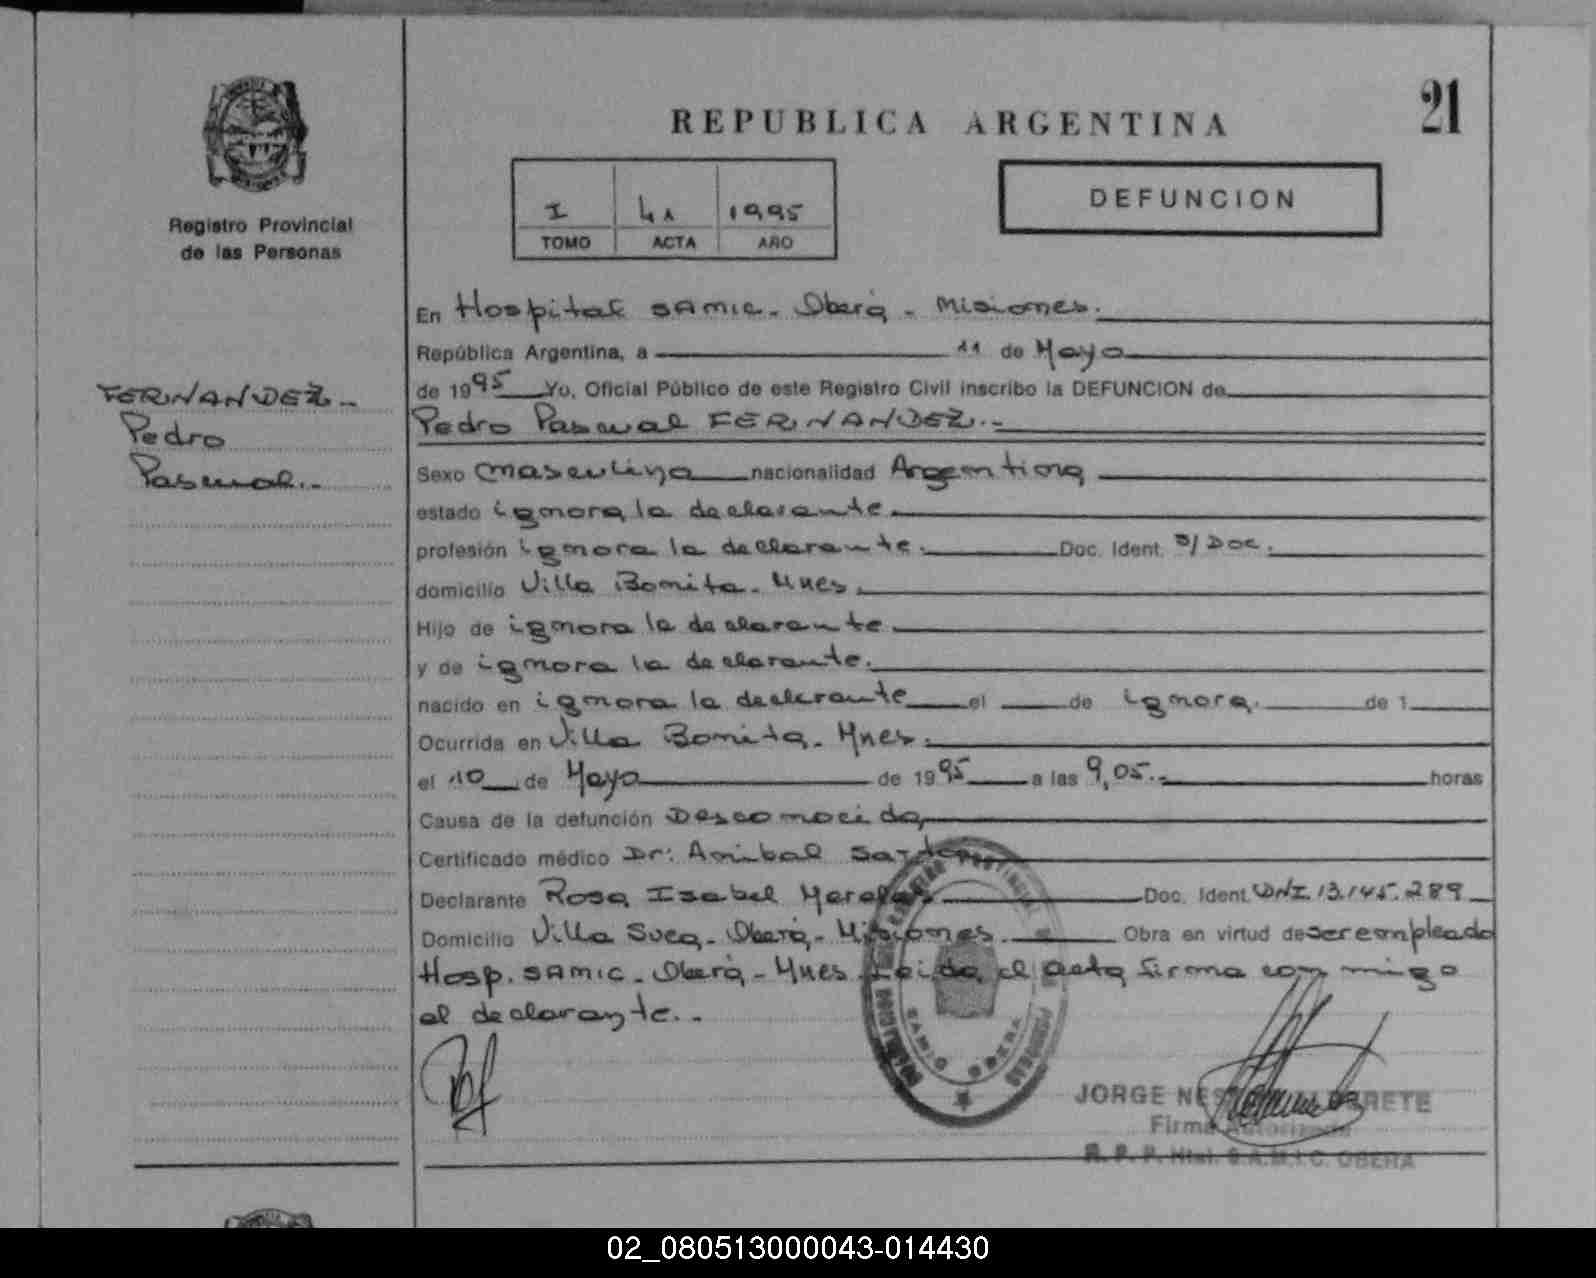 21
REPUBLICA ARGENTINA
Registro Provincial
de las Personas
I 41 1995
TOMO ACTA AÑO
DEFUNCION
FERNANDEZ.-
Pedro
Pascual.-
En Hospital SAMIC - Oberá - Misiones.
República Argentina, a 11 de Mayo
de 1995 Yo, Oficial Público de este Registro Civil inscribo la DEFUNCION de
Pedro Pascual FERNANDEZ.-
Sexo masculino nacionalidad Argentina
estado ignora la declarante
profesión ignora la declarante. Doc. Ident. S/Doc.
domicilio Villa Bonita - Mnes.
Hijo de ignora la declarante
y de ignora la declarante.
nacido en ignora la declarante el de ignora. de 1
Ocurrida en Villa Bonita - Mnes.
el 10 de Mayo de 1995 a las 9,05.- horas
Causa de la defunción Desconocida
Certificado médico Dr: Anibal
Declarante Rosa Isabel Doc. Ident. DNI. 13.145.289
Domicilio Villa Sueca - Oberá - Misiones. Obra en virtud de ser empleado
Hosp. SAMIC - Oberá - Mnes. Leida el acta firma con migo
el declarante.-
SAMIC OBERA
JORGE
Firma Autorizada
R. P. P. Htal. S.A.M.I.C. OBERA
02_080513000043-014430